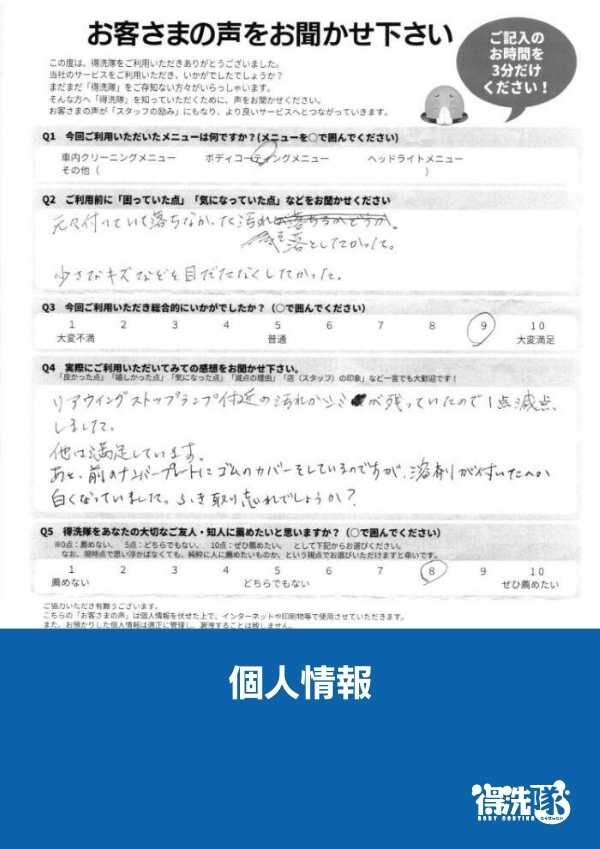 お客さまの声をお聞かせ下さい
ご記入の
お時間を
3分だけ
ください！
この度は、得洗隊をご利用いただきありがとうございました。
当社のサービスをご利用いただき、いかがでしたでしょうか？
まだまだ「得洗隊」をご存知ない方々がいらっしゃいます。
そんな方へ「得洗隊」を知っていただくために、声をお聞かせください。
お客さまの声が「スタッフの励み」にもなり、より良いサービスへとつながっていきます。
Q1 今回ご利用いただいたメニューは何ですか？（メニューを〇で囲んでください）
車内クリーニングメニュー ボディコーティングメニュー ヘッドライトメニュー
その他（ ）
Q2 ご利用前に「困っていた点」「気になっていた点」などをお聞かせください
元々付いていて落ちなかった汚れ
落としたかった。
少さなキズなどを目だたなくしたかった。
Q3 今回ご利用いただき総合的にいかがでしたか？（〇で囲んでください）
1 2 3 4 5 6 7 8 9 10
大変不満 普通 大変満足
Q4 実際にご利用いただいてみての感想をお聞かせ下さい。
「良かった点」「嬉しかった点」「気になった点」「減点の理由」「店（スタッフ）の印象」など一言でも大歓迎です！
リアウイングストップランプ付近の汚れが が残っていたので1点減点
しました。
他は満足しています。
あと、前のナンバープレートにゴムのカバーをしているのですが、溶剤が付いたへんが
白くなっていました。ふき取り忘れでしょうか？
Q5 得洗隊をあなたの大切なご友人・知人に薦めたいと思いますか？（〇で囲んでください）
※0点：薦めない、 5点：どちらでもない、 10点：ぜひ薦めたい、 として下記からお選びください。
なお、現時点で思い浮かばなくても、純粋に人に薦めたいものか、という視点でお選びいただけますと幸いです。
1 2 3 4 5 6 7 8 9 10
薦めない どちらでもない ぜひ薦めたい
ご協力いただき有難うございます。
こちらの「お客さまの声」は個人情報を伏せた上で、インターネットや印刷物等で使用させていただきます。
また、お預かりした個人情報は適正に管理し、漏洩することは致しません。
個人情報
得洗隊
BODY COATING